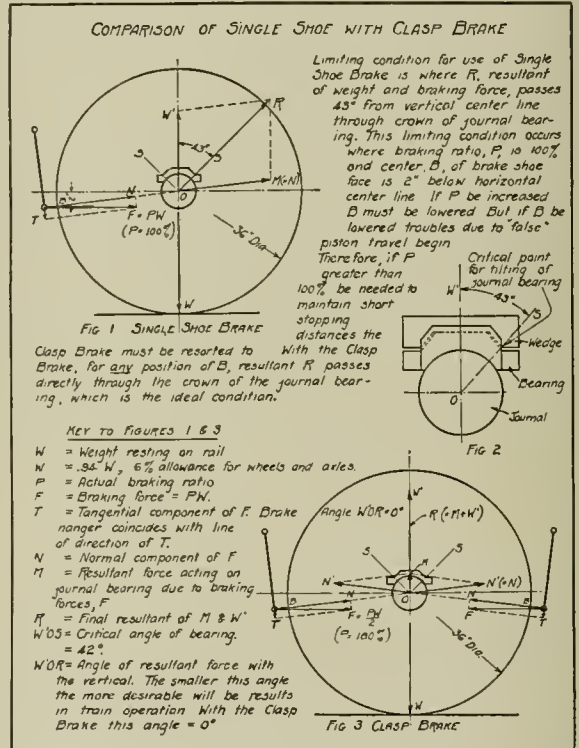 COMPARISON OF SINGLE SHOE WITH CLASP BRAKE
Limiting condition for use of Single
Shoe Brake is where R, resultant
of weight and braking force, passes
43° from vertical center line
through crown of journal bear-
ing. This limiting condition occurs
where braking ratio, P, is 100%
and center, B, of brake shoe
face is 2" below horizontal
center line If P be increased
B must be lowered But if B be
lowered troubles due to "false"
piston travel begin
Therefore, if P
greater than
100% be needed to
maintain short
stopping
distances the
Clasp Brake must be resorted to With the Clasp
Brake, for any position of B, resultant R passes
directly through the crown of the journal bear-
ing, which is the ideal condition.
W'
R
43°
S
S
O
M(=N)
B
N
T
F = PW
(P=100%)
36" Dia
W
FIG 1 SINGLE SHOE BRAKE
Critical point
for tilting of
journal bearing
W'
43°
S
Wedge
Bearing
O
Journal
FIG 2
KEY TO FIGURES 1 & 3
W = Weight resting on rail
W = .94 W, 6% allowance for wheels and axles.
P = Actual braking ratio
F = Braking force = PW.
T = Tangential component of F. Brake
hanger coincides with line
of direction of T.
N = Normal component of F
M = Resultant force acting on
journal bearing due to braking
forces, F
R = Final resultant of M & W'
W'OS = Critical angle of bearing.
= 42°.
W'OR = Angle of resultant force with
the vertical. The smaller this angle
the more desirable will be results
in train operation With the Clasp
Brake this angle = 0°
W'
Angle W'OR=0°
R (=M+W')
S
M
S
N'
N'(=N)
O
B
N
N
B
T
F = PW/2
(P=180%)
T
36" Dia.
W
FIG 3 CLASP BRAKE